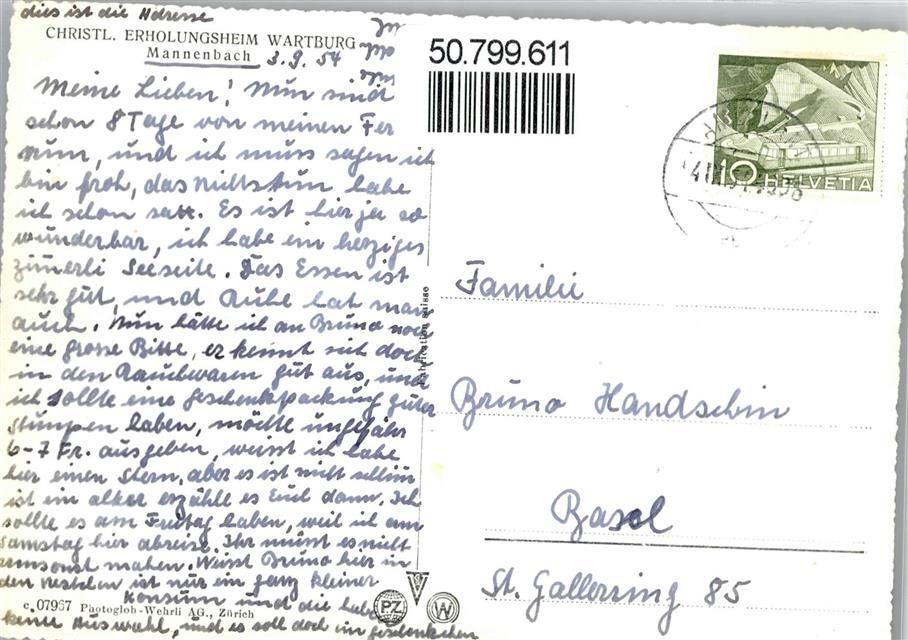 dies ist die Adresse
CHRISTL. ERHOLUNGSHEIM WARTBURG
Mannenbach 3.9.54
Meine Lieben! Nun sind
schon 8 Tage von meinen Fe
rium, und ich muss sagen ich
bin froh, das Nichtstun habe
ich schon satt. Es ist hier ja so
wunderbar, ich habe ein herziges
Zimerli Seeseite. Das Essen ist
sehr gut, und Ruhe hat man
auch. Nun hätte ich an Bruno noch
eine grosse Bitte, er kennt sich doch
in den Rauchwaren gut aus, und
ich sollte eine Geschenkpackung guter
Stumpen haben, möchte ungefähr
6-7 Fr. ausgeben, weisst ich habe
hier einen Stern, aber es ist nicht
ist ein alter erzähle es Euch dann. Ich
sollte es am Freitag haben, weil ich am
Samstag hier abreise. Ihr müsst es nicht
umsonst machen. Weisst Bruno hier in
den ist nur ein ganz kleiner
Konsum und die haben
keine Auswahl, und es soll doch ein Geschenkchen
c. 07967 Photoglob-Wehrli AG., Zürich
PZ
W
Fabrication suisse
50.799.611
10 HELVETIA
Familie
Bruno Handschin
Basel
St. Gallerring 85